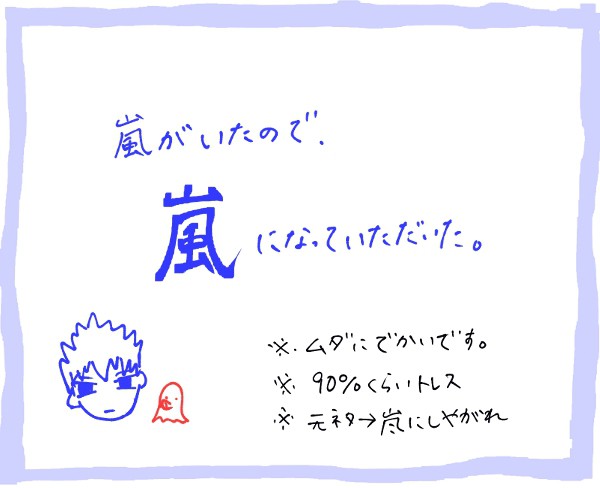 嵐がいたので、
嵐になっていただいた。
※.ムダにでかいです。
※ 90%くらいトレス
※ 元ネタ→嵐にしやがれ